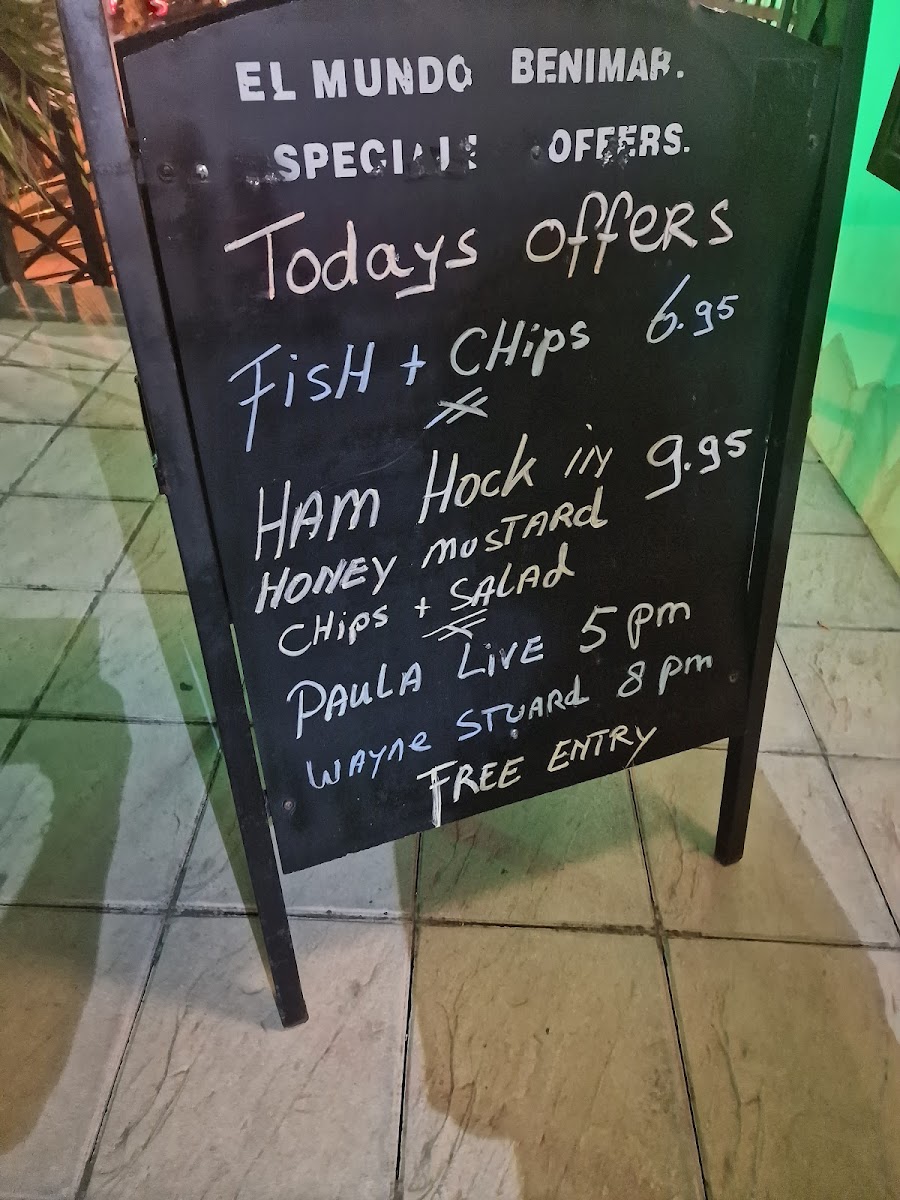 EL MUNDO BENIMAR.
SPECIALE OFFERS.
Todays offers
FisH + CHips 6.95
HAM Hock iN 9.95
HONEY MUSTARd
CHips + SALAd
PAULA LivE 5 pm
WAYNe STUARd 8 pm
FREE ENTRY